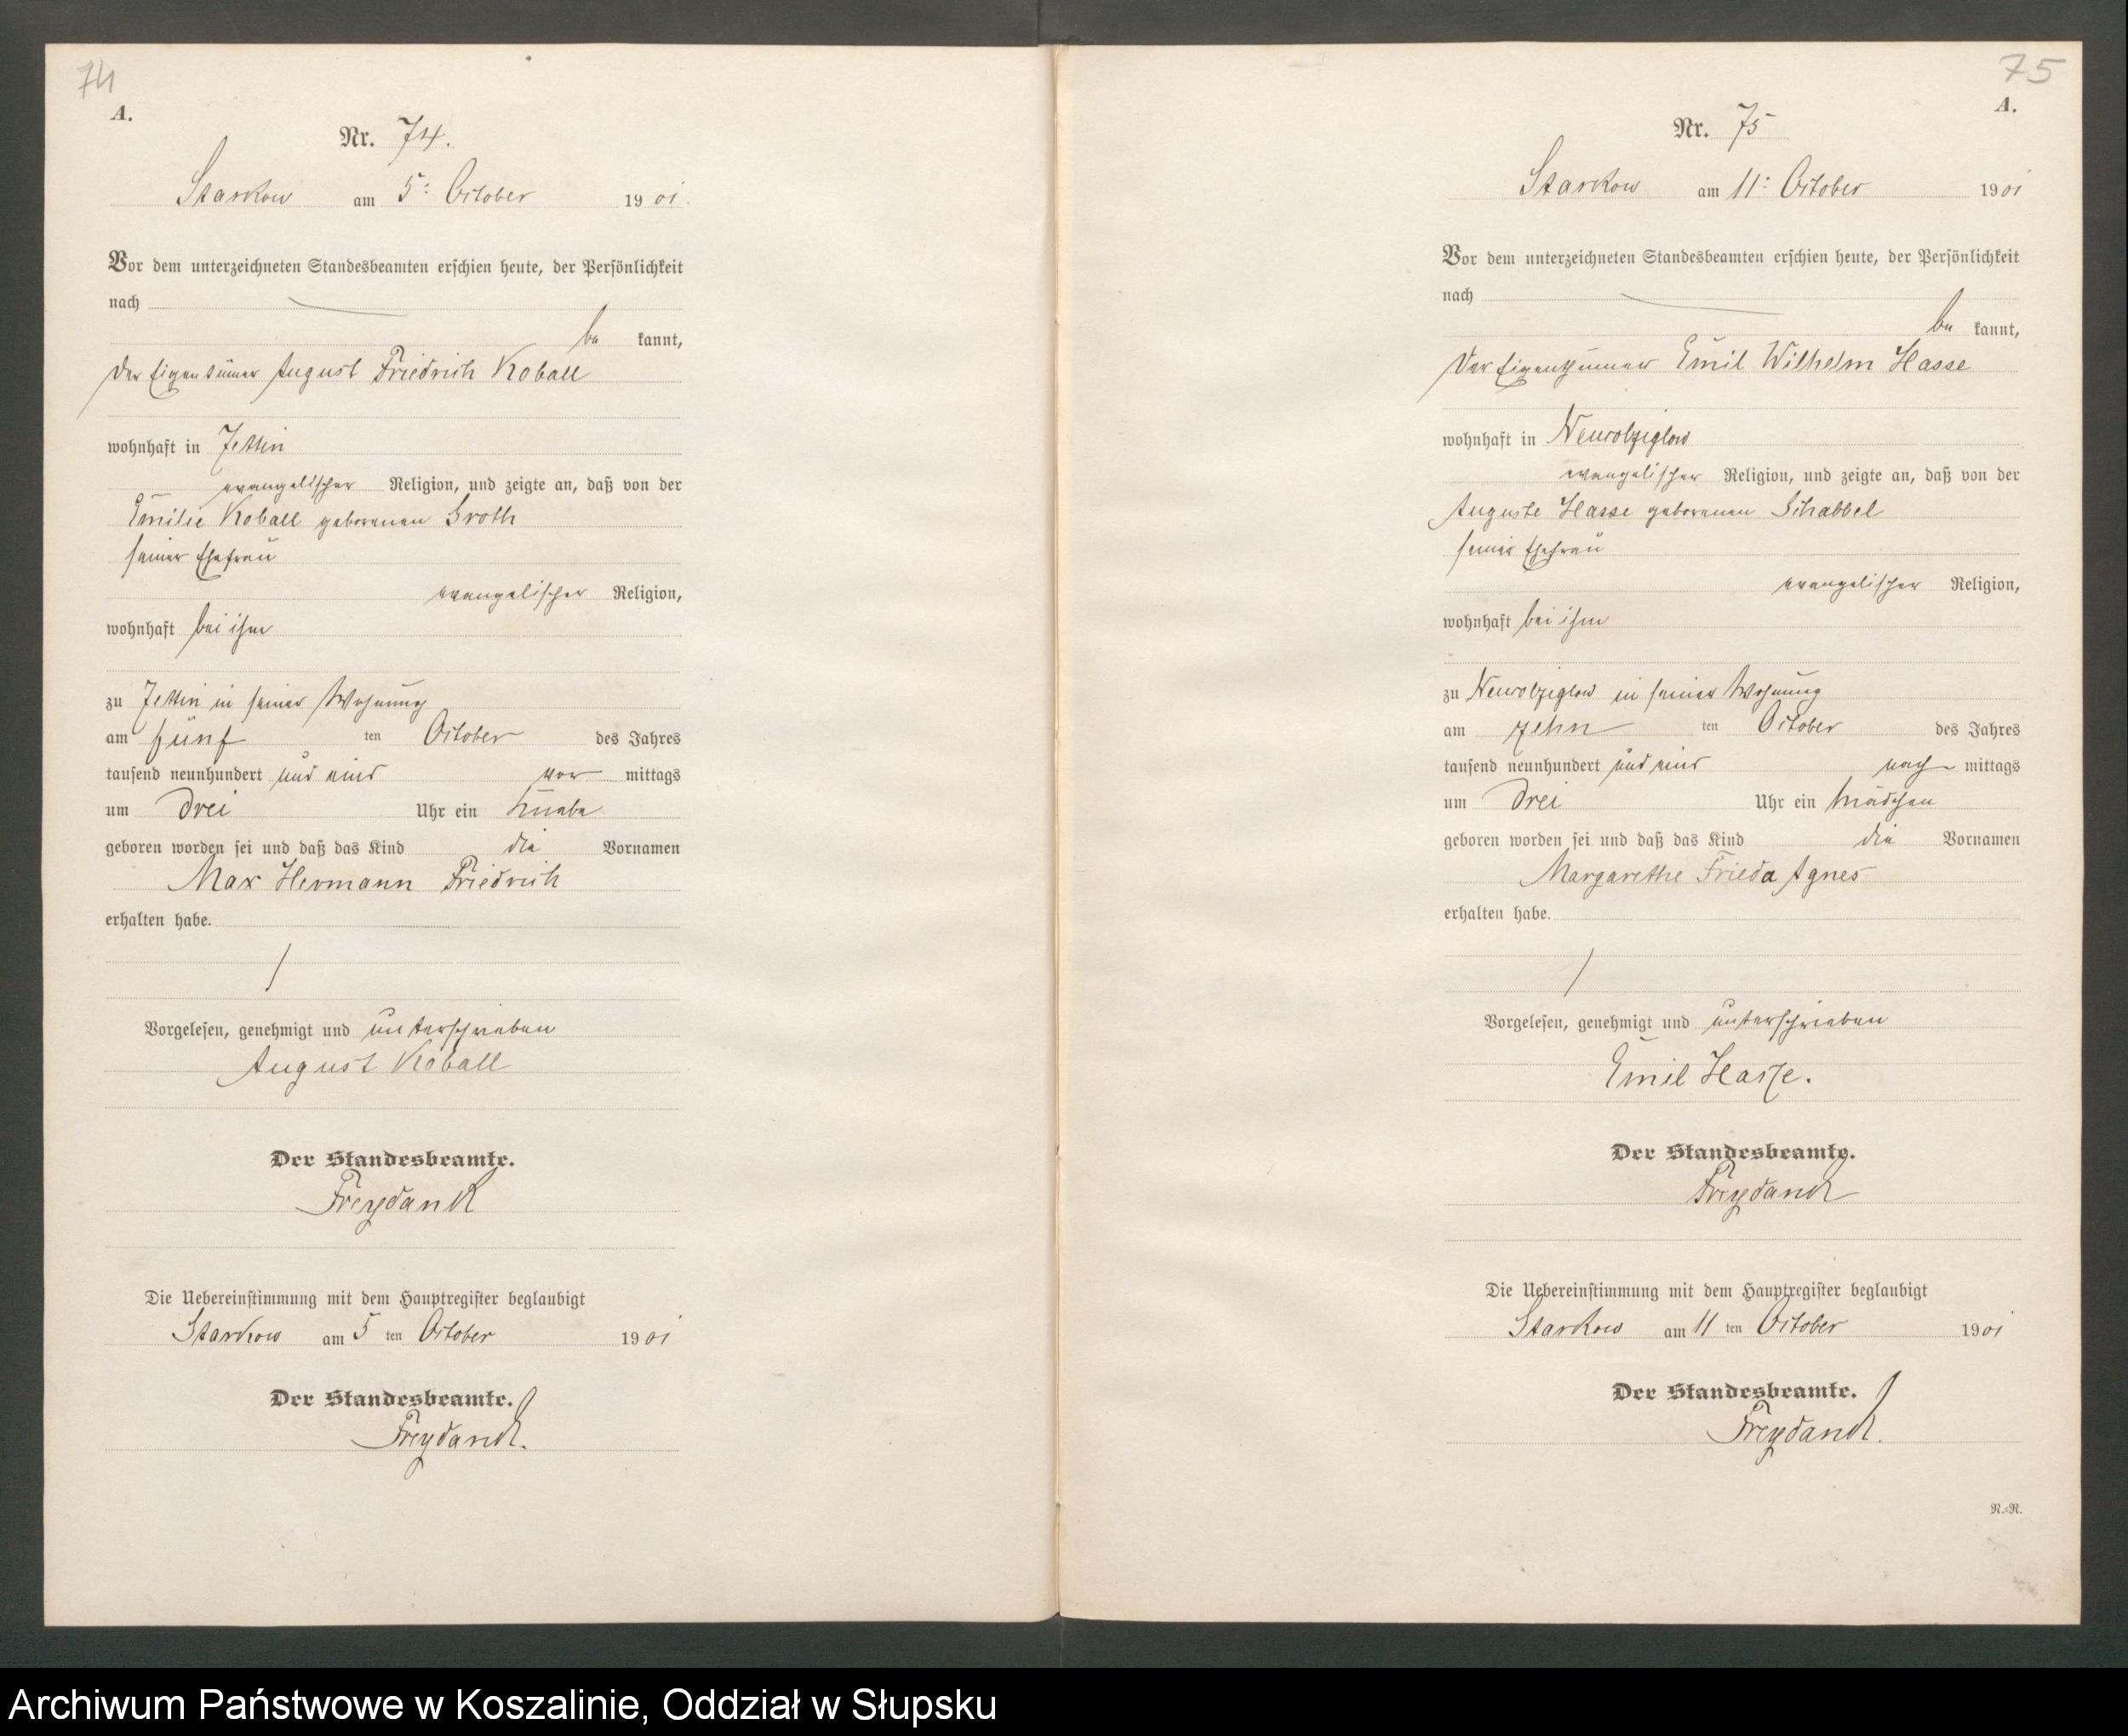 74
A.
Nr. 74.
Starkow am 5: October 1901.
Vor dem unterzeichneten Standesbeamten erschien heute, der Persönlichkeit
nach
be kannt,
der Eigentümer August Friedrich Koball
wohnhaft in Jettin
evangelischer Religion, und zeigte an, daß von der
Emilie Koball geborenen Groth
seiner Ehefrau
evangelischer Religion,
wohnhaft bei ihm
zu Jettin in seiner Wohnung
am fünf ten October des Jahres
tausend neunhundert und eins vor mittags
um drei Uhr ein Knabe
geboren worden sei und daß das Kind die Vornamen
Max Hermann Friedrich
erhalten habe.
Vorgelesen, genehmigt und unterschrieben
August Koball
Der Standesbeamte.
Freydank
Die Uebereinstimmung mit dem Hauptregister beglaubigt
Starkow am 5 ten October 1901
Der Standesbeamte.
Freydank.
75
A.
Nr. 75
Starkow am 11: October 1901
Vor dem unterzeichneten Standesbeamten erschien heute, der Persönlichkeit
nach
be kannt,
der Eigenthümer Emil Wilhelm Hasse
wohnhaft in Neukolziglow
evangelischer Religion, und zeigte an, daß von der
Auguste Hasse geborenen Schabbel
seiner Ehefrau
evangelischer Religion,
wohnhaft bei ihm
zu Neukolziglow in seiner Wohnung
am zehn ten October des Jahres
tausend neunhundert und eins nach mittags
um drei Uhr ein Mädchen
geboren worden sei und daß das Kind die Vornamen
Margarethe Frieda Agnes
erhalten habe.
Vorgelesen, genehmigt und unterschrieben
Emil Hasse.
Der Standesbeamte.
Freydank
Die Uebereinstimmung mit dem Hauptregister beglaubigt
Starkow am 11 ten October 1901
Der Standesbeamte.
Freydank.
N.-N.
Archiwum Państwowe w Koszalinie, Oddział w Słupsku